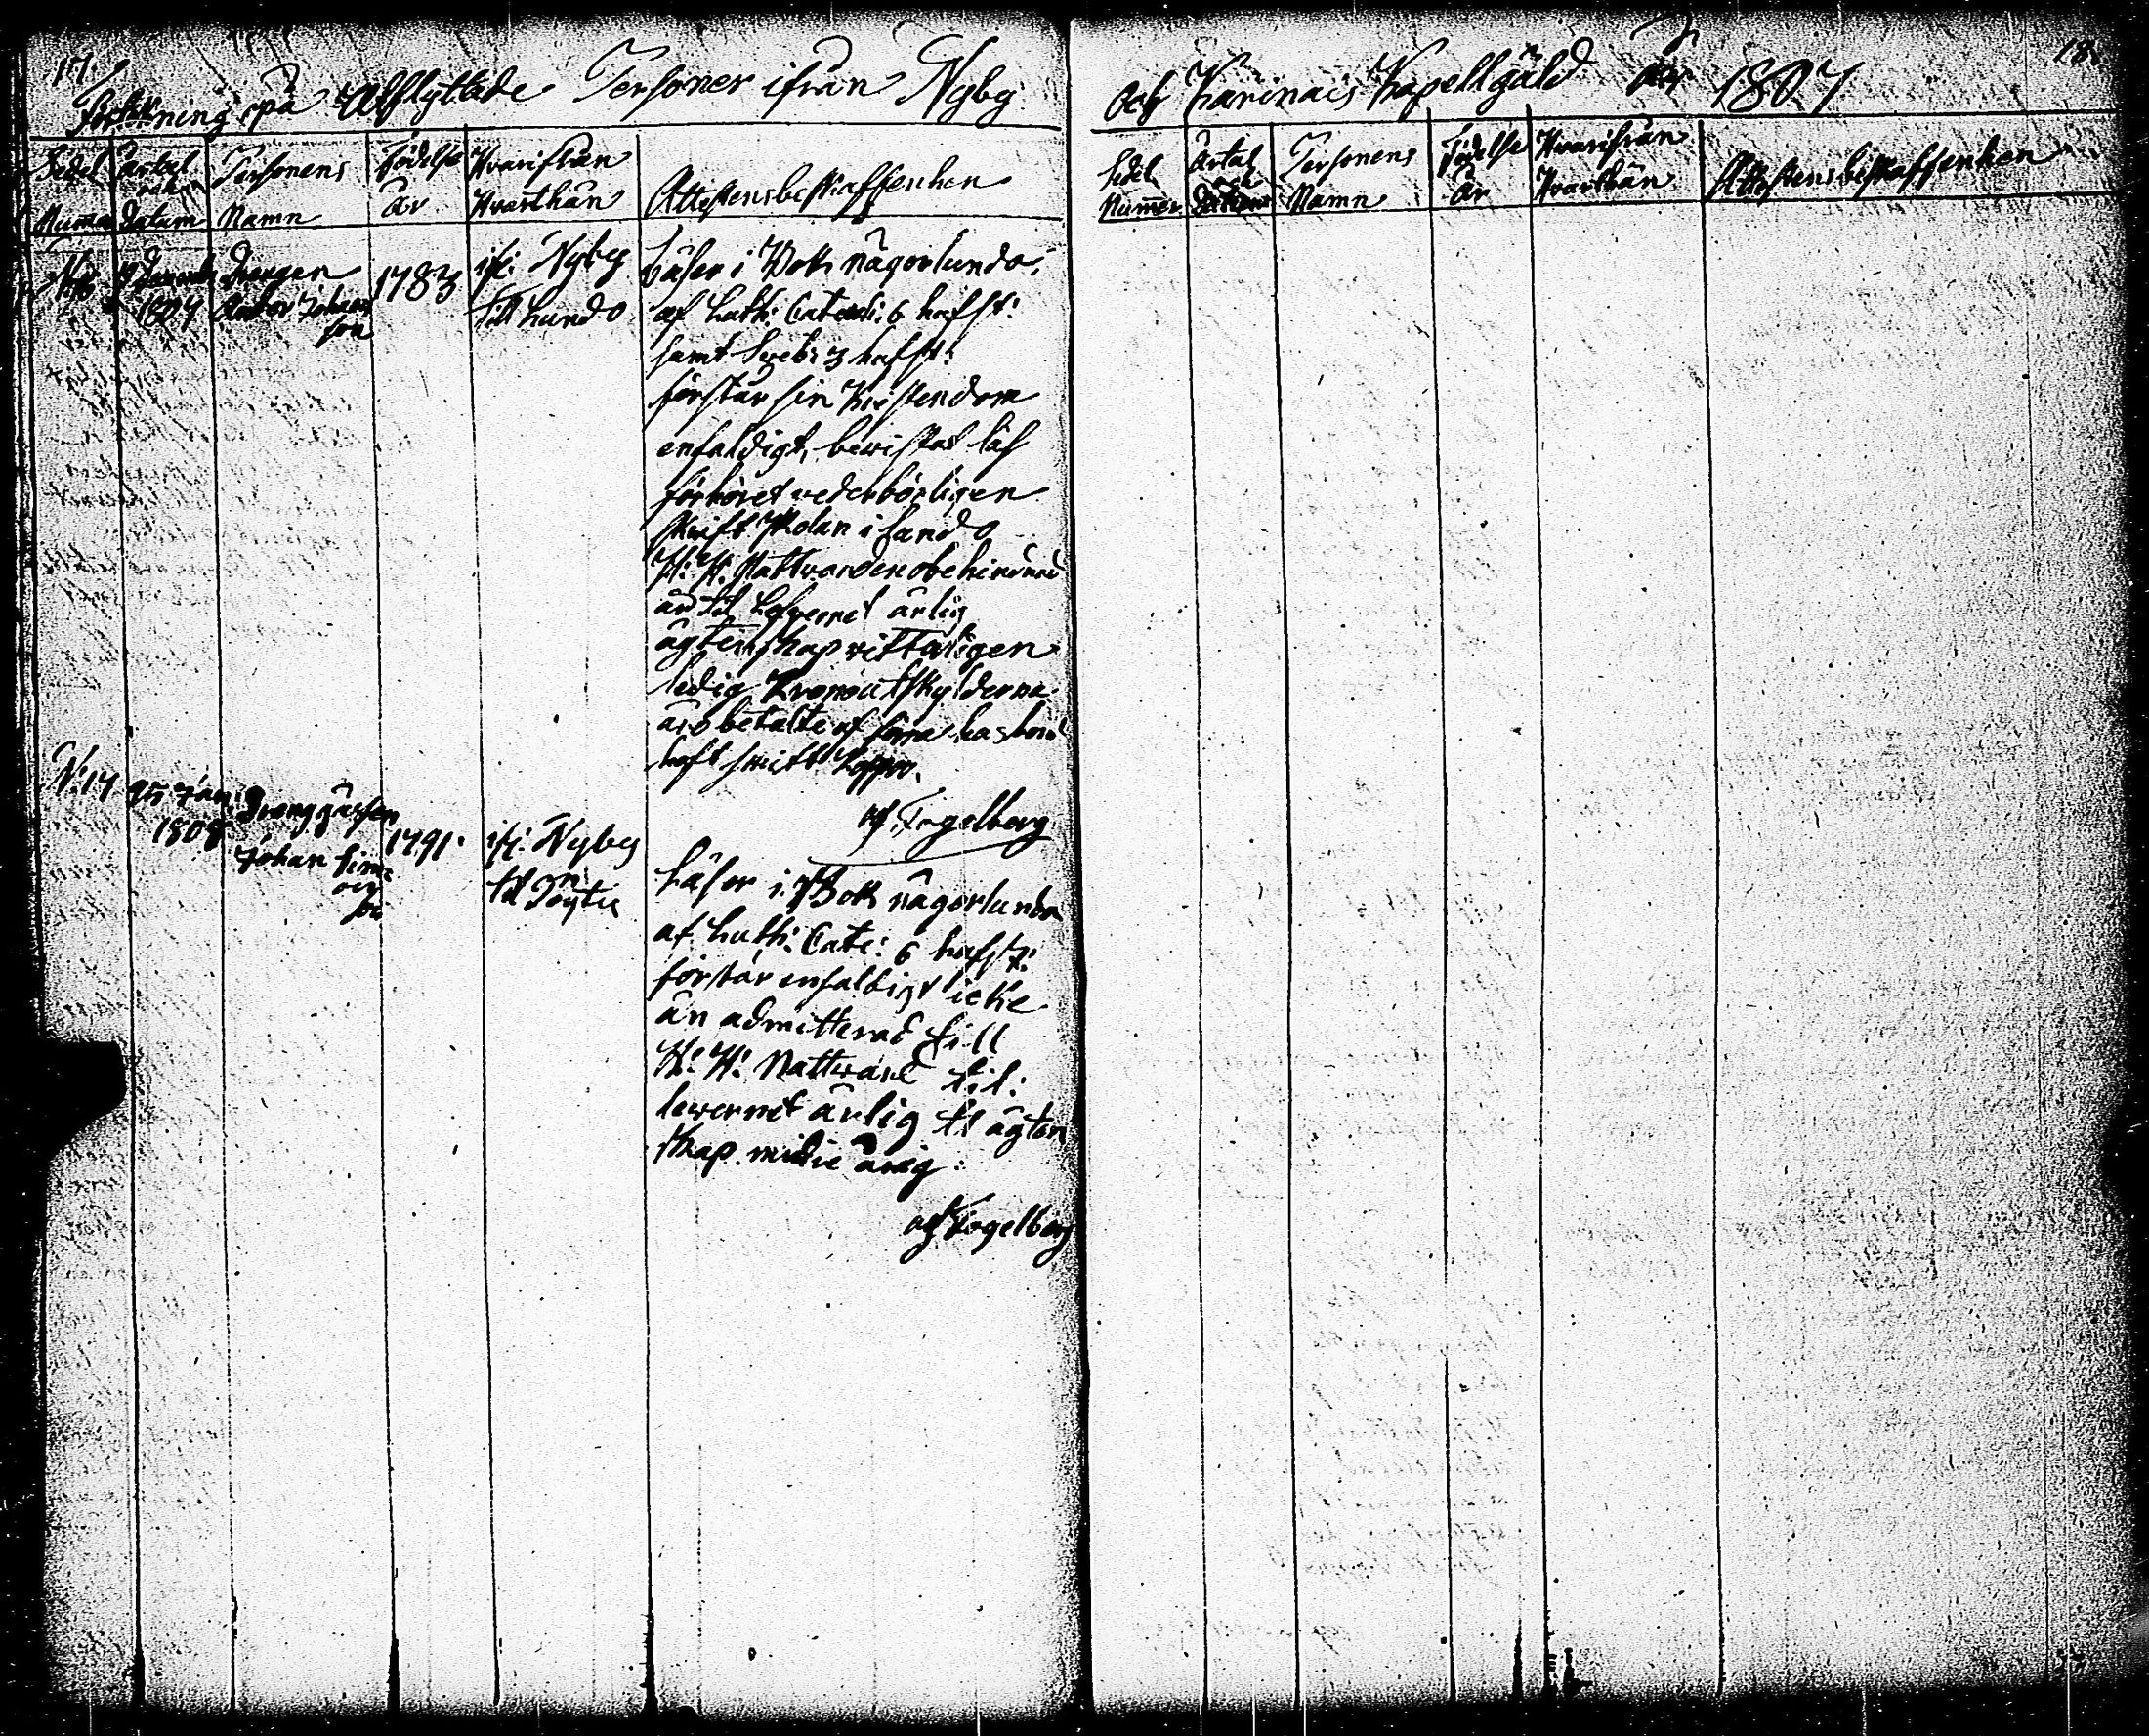 17
Förtekning på Afflyttade Personer ifrån Nyby
Sedel Numer
årtal och datum
Personens Namn
födelse år
Hvarifrån Hvarthän
Attestens beskaffenhen
N:16
Decemb 1807
Drengen Anders Johans son
1783
ifr: Nyby till Lundo
Läser i Bok någorlunda,
af Luth: Catech: 6 hufst:
samt Sveb: 3 hufst:
förstår sin Kristendom
enfaldigt, bewistat läs
förhöret vederbörligen
skrift skolan i Lundo
H: H: Nattvarden obehindrad
är til Lefvernet ärlig
ägtenskap vitterligen
ledig Kronoutskylderna
äro betalte af
haft Koppor.
af. Fogelberg
N:17
25 Jan: 1808
Drenggåssen Johan Simo son
1791.
ifr: Nyby til Pöytis
Läser i Bok någorlunda
af Luth: Cate: 6 hufst:
förstår enfaldigt icke
än admitterad till
H: H: Nattward til:
lewernet ärlig til ägten
skap årig.
af Fogelberg
18.
och Karinais Kapellgäld År 1807
Sedel Numer
Årtal och Datum
Personens Namn
födelse år
Hvarifrån Hvarthän
Attestens beskaffenhen